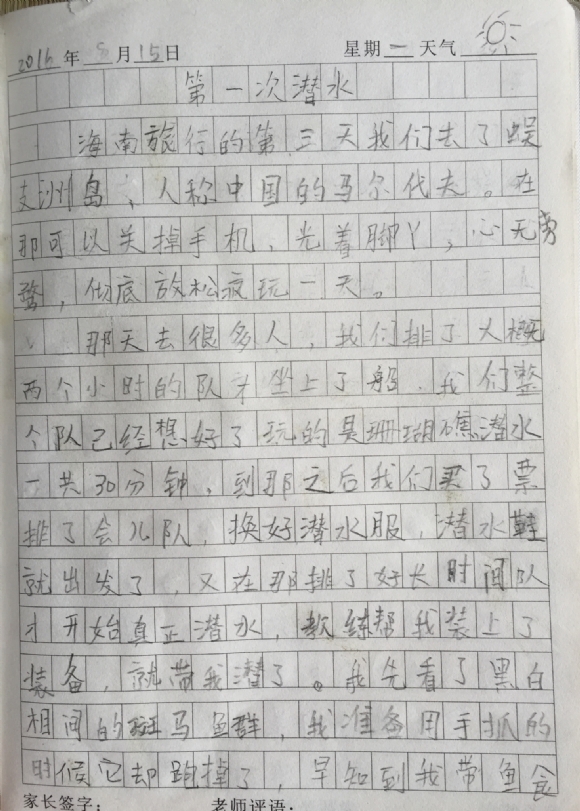 2016年8月15日 星期一天气
第一次潜水
海南旅行的第三天我们去了蜈
支洲岛、人称中国的马尔代夫。在
那可以关掉手机、光着脚丫,心无旁
骛,彻底放松疯玩一天。
那天去很多人,我们排了大概
两个小时的队才坐上了船.我们整
个队已经想好了玩的是珊瑚礁潜水
一共30分钟,到那之后我们买了票
排了会儿队,换好潜水服,潜水鞋
就出发了,又在那排了好长时间队
才开始真正潜水,教练帮我装上了
装备,就带我潜了。我先看了黑白
相间的斑马鱼群,我准备用手抓的
时候它却跑掉了 早知到我带鱼食
家长签字: 老师评语: